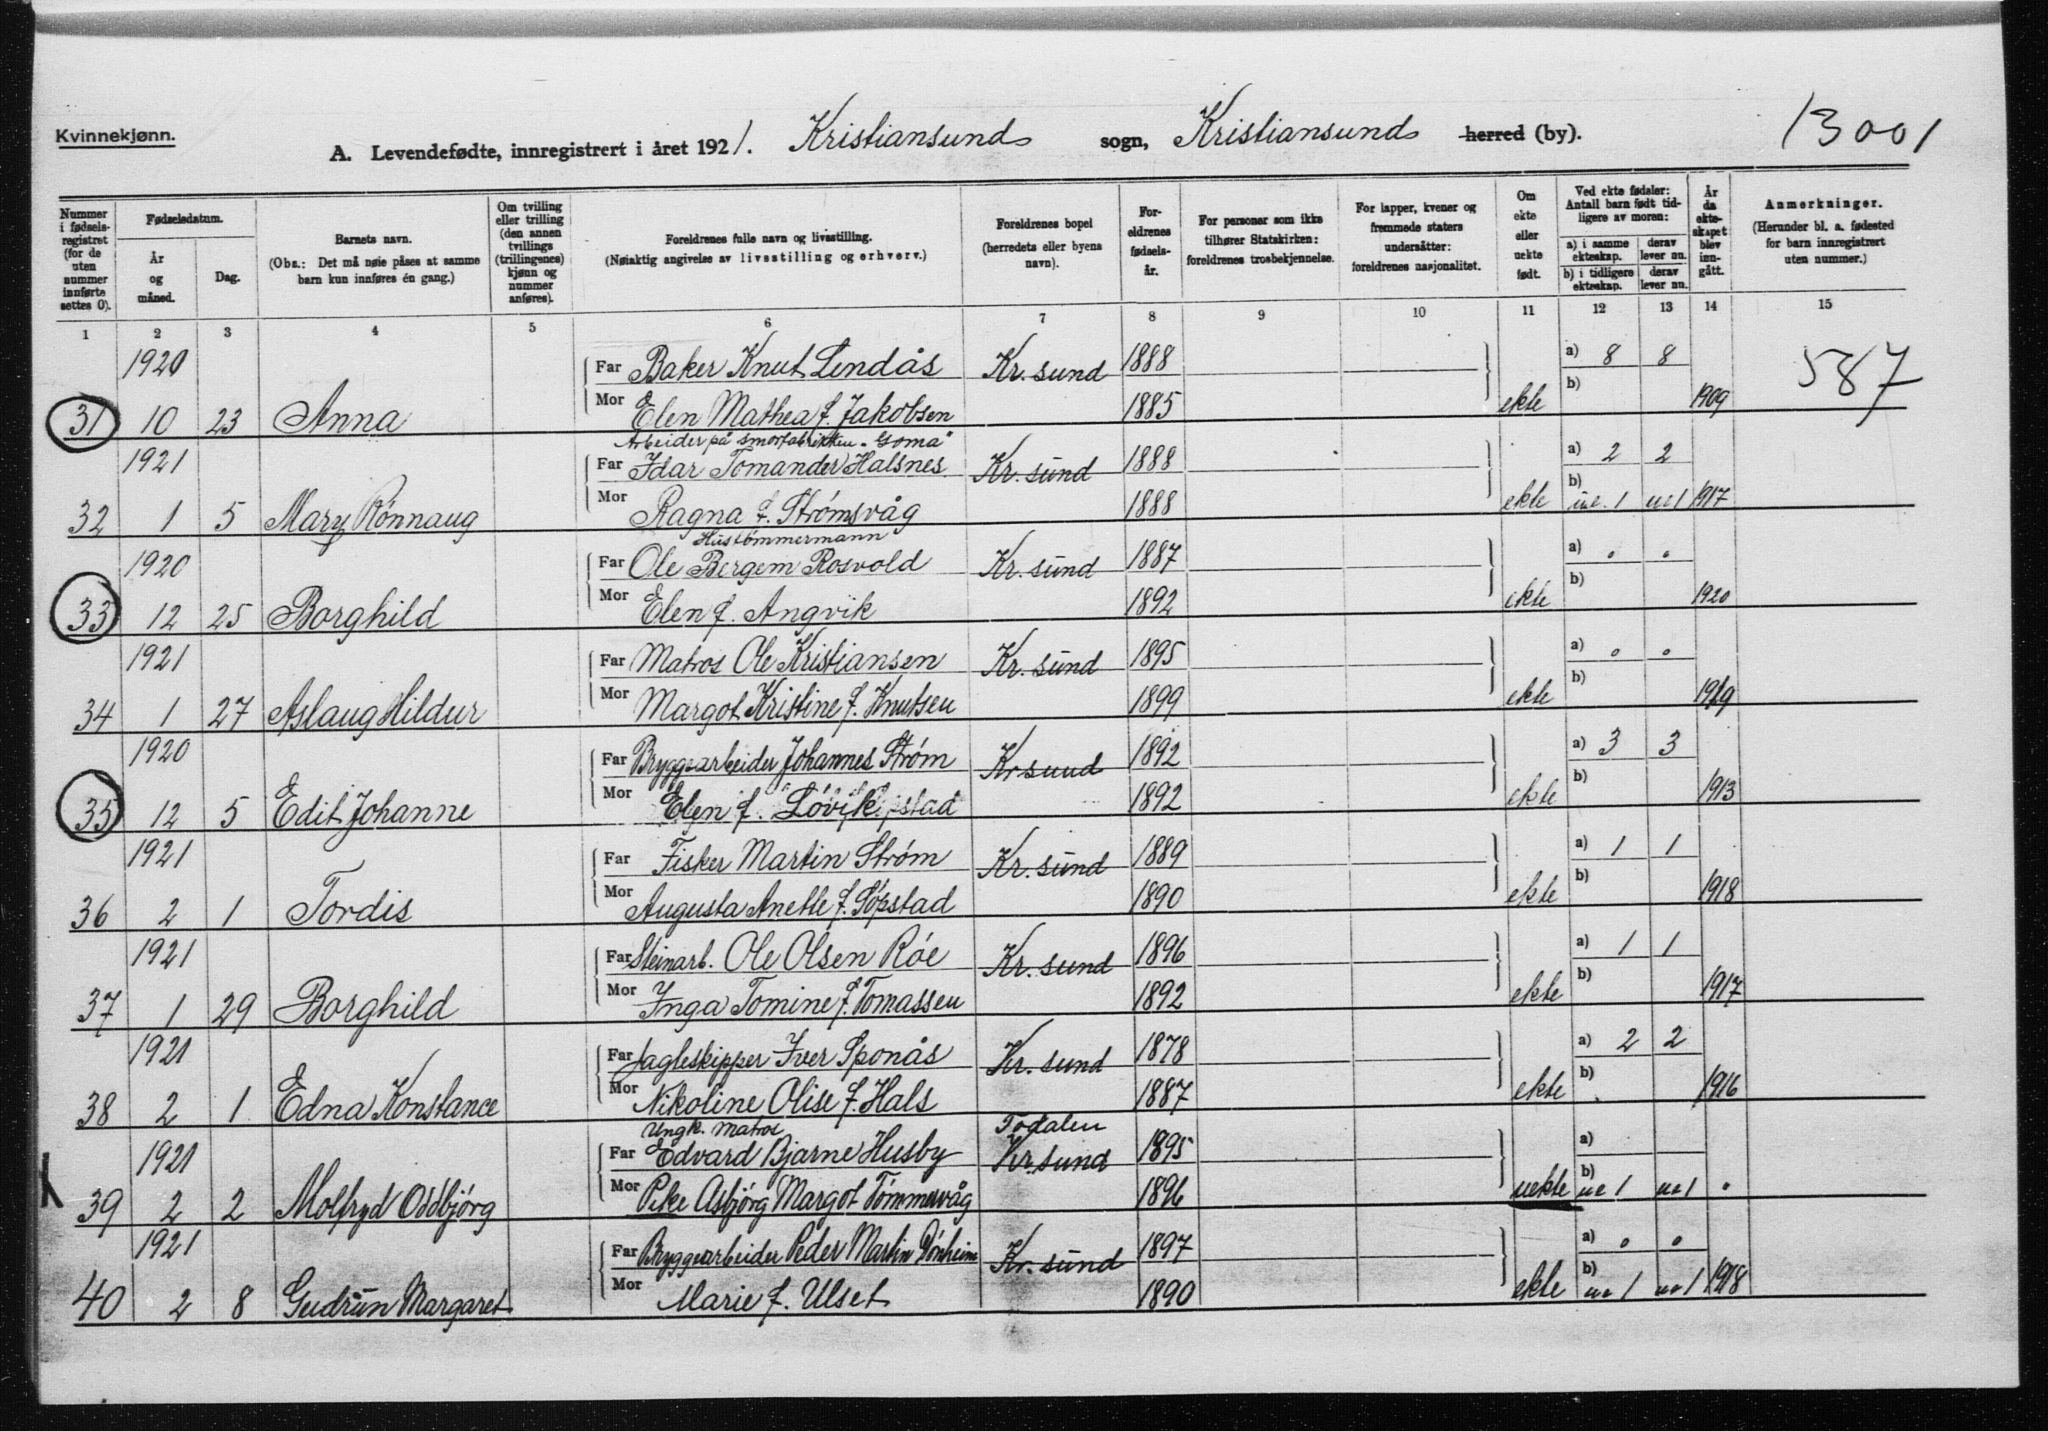 Kvinnekjønn.
A. Levendefødte, innregistrert i året 1921. Kristiansund sogn, Kristiansund herred (by).
13001
Nummer i fødsels-registret (for de uten nummer innførte settes 0).
Fødselsdatum.
År og måned.
Dag.
Barnets navn.
(Obs.: Det må nøie påses at samme barn kun innføres én gang.)
Om tvilling eller trilling (den annen tvillings (trillingenes) kjønn og nummer anføres).
Foreldrenes fulle navn og livsstilling.
(Nøiaktig angivelse av livsstilling og erhverv.)
Foreldrenes bopel (herredets eller byens navn).
For-eldrenes fødsels-år.
For personer som ikke tilhører Statskirken: foreldrenes trosbekjennelse.
For lapper, kvener og fremmede staters undersåtter: foreldrenes nasjonalitet.
Om ekte eller uekte født.
Ved ekte fødsler: Antall barn født tid-ligere av moren:
a) i samme ekteskap.
derav lever nu.
b) i tidligere ekteskap.
derav lever nu.
År da ekte-skapet blev inn-gått.
Anmerkninger.
(Herunder bl. a. fødested for barn innregistrert uten nummer.)
1 2 3 4 5 6 7 8 9 10 11 12 13 14 15
1920 Far Baker Knut Lendås Kr. sund 1888 a) 8 8 587
31 10 23 Anna Mor Elen Mathea f. Jakobsen 1885 ekte b) 1909
Arbeider på smørfabrikken "Goma"
1921 Far Idar Tomander Halsnes Kr. sund 1888 a) 2 2
32 1 5 Mary Rønnaug Mor Ragna f. Strømsvåg 1888 ekte b) ue. 1 ue 1 1917
Hustømmermann
1920 Far Ole Bergem Rosvold Kr. sund 1887 a) 0 0
33 12 25 Borghild Mor Elen f. Angvik 1892 ekte b) 1920
1921 Far Matros Ole Kristiansen Kr. sund 1895 a) 0 0
34 1 27 Aslaug Hildur Mor Margot Kristine f. Knutsen 1899 ekte b) 1919
1920 Far Bryggearbeider Johannes Strøm Kr sund 1892 a) 3 3
35 12 5 Edit Johanne Mor Elen f. Løvik 1892 ekte b) 1913
1921 Far Fisker Martin Strøm Kr. sund 1889 a) 1 1
36 2 1 Tordis Mor Augusta Anette f. Søpstad 1890 ekte b) 1918
1921 Far Steinarb. Ole Olsen Røe Kr. sund 1896 a) 1 1
37 1 29 Borghild Mor Inga Tomine f. Tomassen 1892 ekte b) 1917
1921 Far Jagteskipper Iver Sponås Kr. sund 1878 a) 2 2
38 2 1 Edna Konstance Mor Nikoline Olise f. Hals 1887 ekte b) 1916
Ungk. Matros Todalen
1921 Far Edvard Bjarne Husby Kr. sund 1895 a)
39 2 2 Molfryd Oddbjørg Mor Pike Asbjørg Margot Tømmervåg 1896 uekte b) ue 1 ue 1
1921 Far Bryggearbeider Peder Martin Dønheim Kr. sund 1897 a) 0 0
40 2 8 Gudrun Margaret Mor Marie f. Ulset 1890 ekte b) ue 1 ue 1 1918